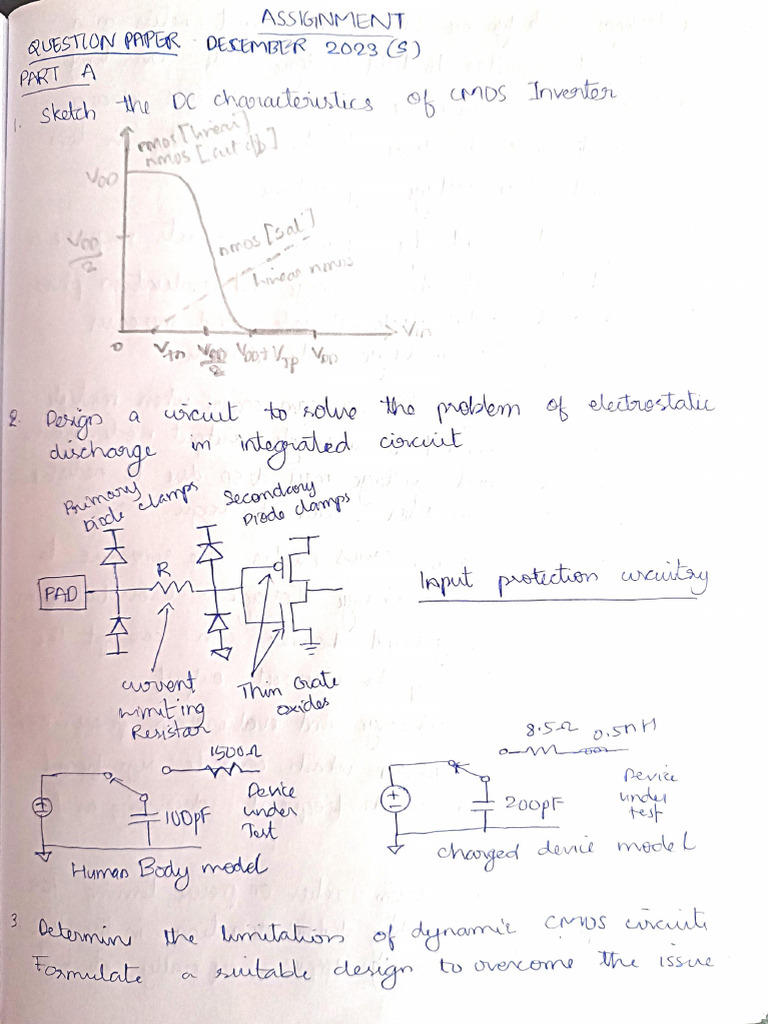 ASSIGNMENT
QUESTION PAPER DESEMBER 2023 (S)
PART A
1. Sketch the DC characteristics of CMOS Inverter
nmos [cut off]
VDD
VDD/2
nmos [sat]
linear nmos
0 Vtn VDD/2 VDD+VTP VDD Vin
2. Design a circuit to solve the problem of electrostatic
discharge in integrated circuit
Primary Diode clamps
Secondary Diode clamps
PAD
R
Input protection circuitry
current limiting Resistor
Thin Gate oxides
1500Ω
100pF
Device under Test
Human Body model
8.5Ω 0.5nH
200pF
Device under test
charged device model
3. Determine the limitation of dynamic CMOS circuit.
Formulate a suitable design to overcome the issue